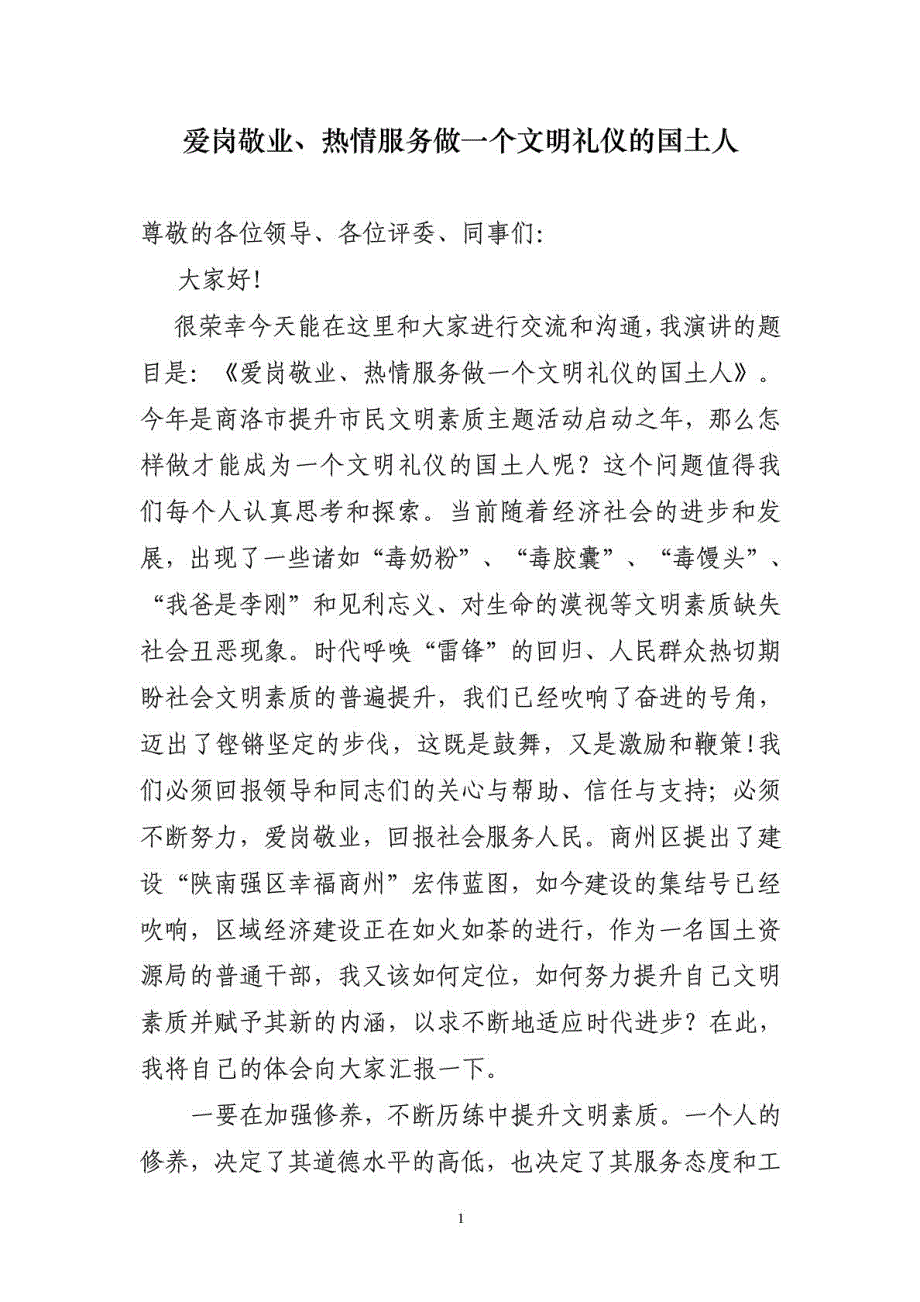 爱岗敬业、热情服务做一个文明礼仪的国土人
尊敬的各位领导、各位评委、同事们：
大家好！
很荣幸今天能在这里和大家进行交流和沟通，我演讲的题
目是：《爱岗敬业、热情服务做一个文明礼仪的国土人》。
今年是商洛市提升市民文明素质主题活动启动之年，那么怎
样做才能成为一个文明礼仪的国土人呢？这个问题值得我
们每个人认真思考和探索。当前随着经济社会的进步和发
展，出现了一些诸如“毒奶粉”、“毒胶囊”、“毒馒头”、
“我爸是李刚”和见利忘义、对生命的漠视等文明素质缺失
社会丑恶现象。时代呼唤“雷锋”的回归、人民群众热切期
盼社会文明素质的普遍提升，我们已经吹响了奋进的号角，
迈出了铿锵坚定的步伐，这既是鼓舞，又是激励和鞭策！我
们必须回报领导和同志们的关心与帮助、信任与支持；必须
不断努力，爱岗敬业，回报社会服务人民。商州区提出了建
设“陕南强区幸福商州”宏伟蓝图，如今建设的集结号已经
吹响，区域经济建设正在如火如荼的进行，作为一名国土资
源局的普通干部，我又该如何定位，如何努力提升自己文明
素质并赋予其新的内涵，以求不断地适应时代进步？在此，
我将自己的体会向大家汇报一下。
一要在加强修养，不断历练中提升文明素质。一个人的
修养，决定了其道德水平的高低，也决定了其服务态度和工
1